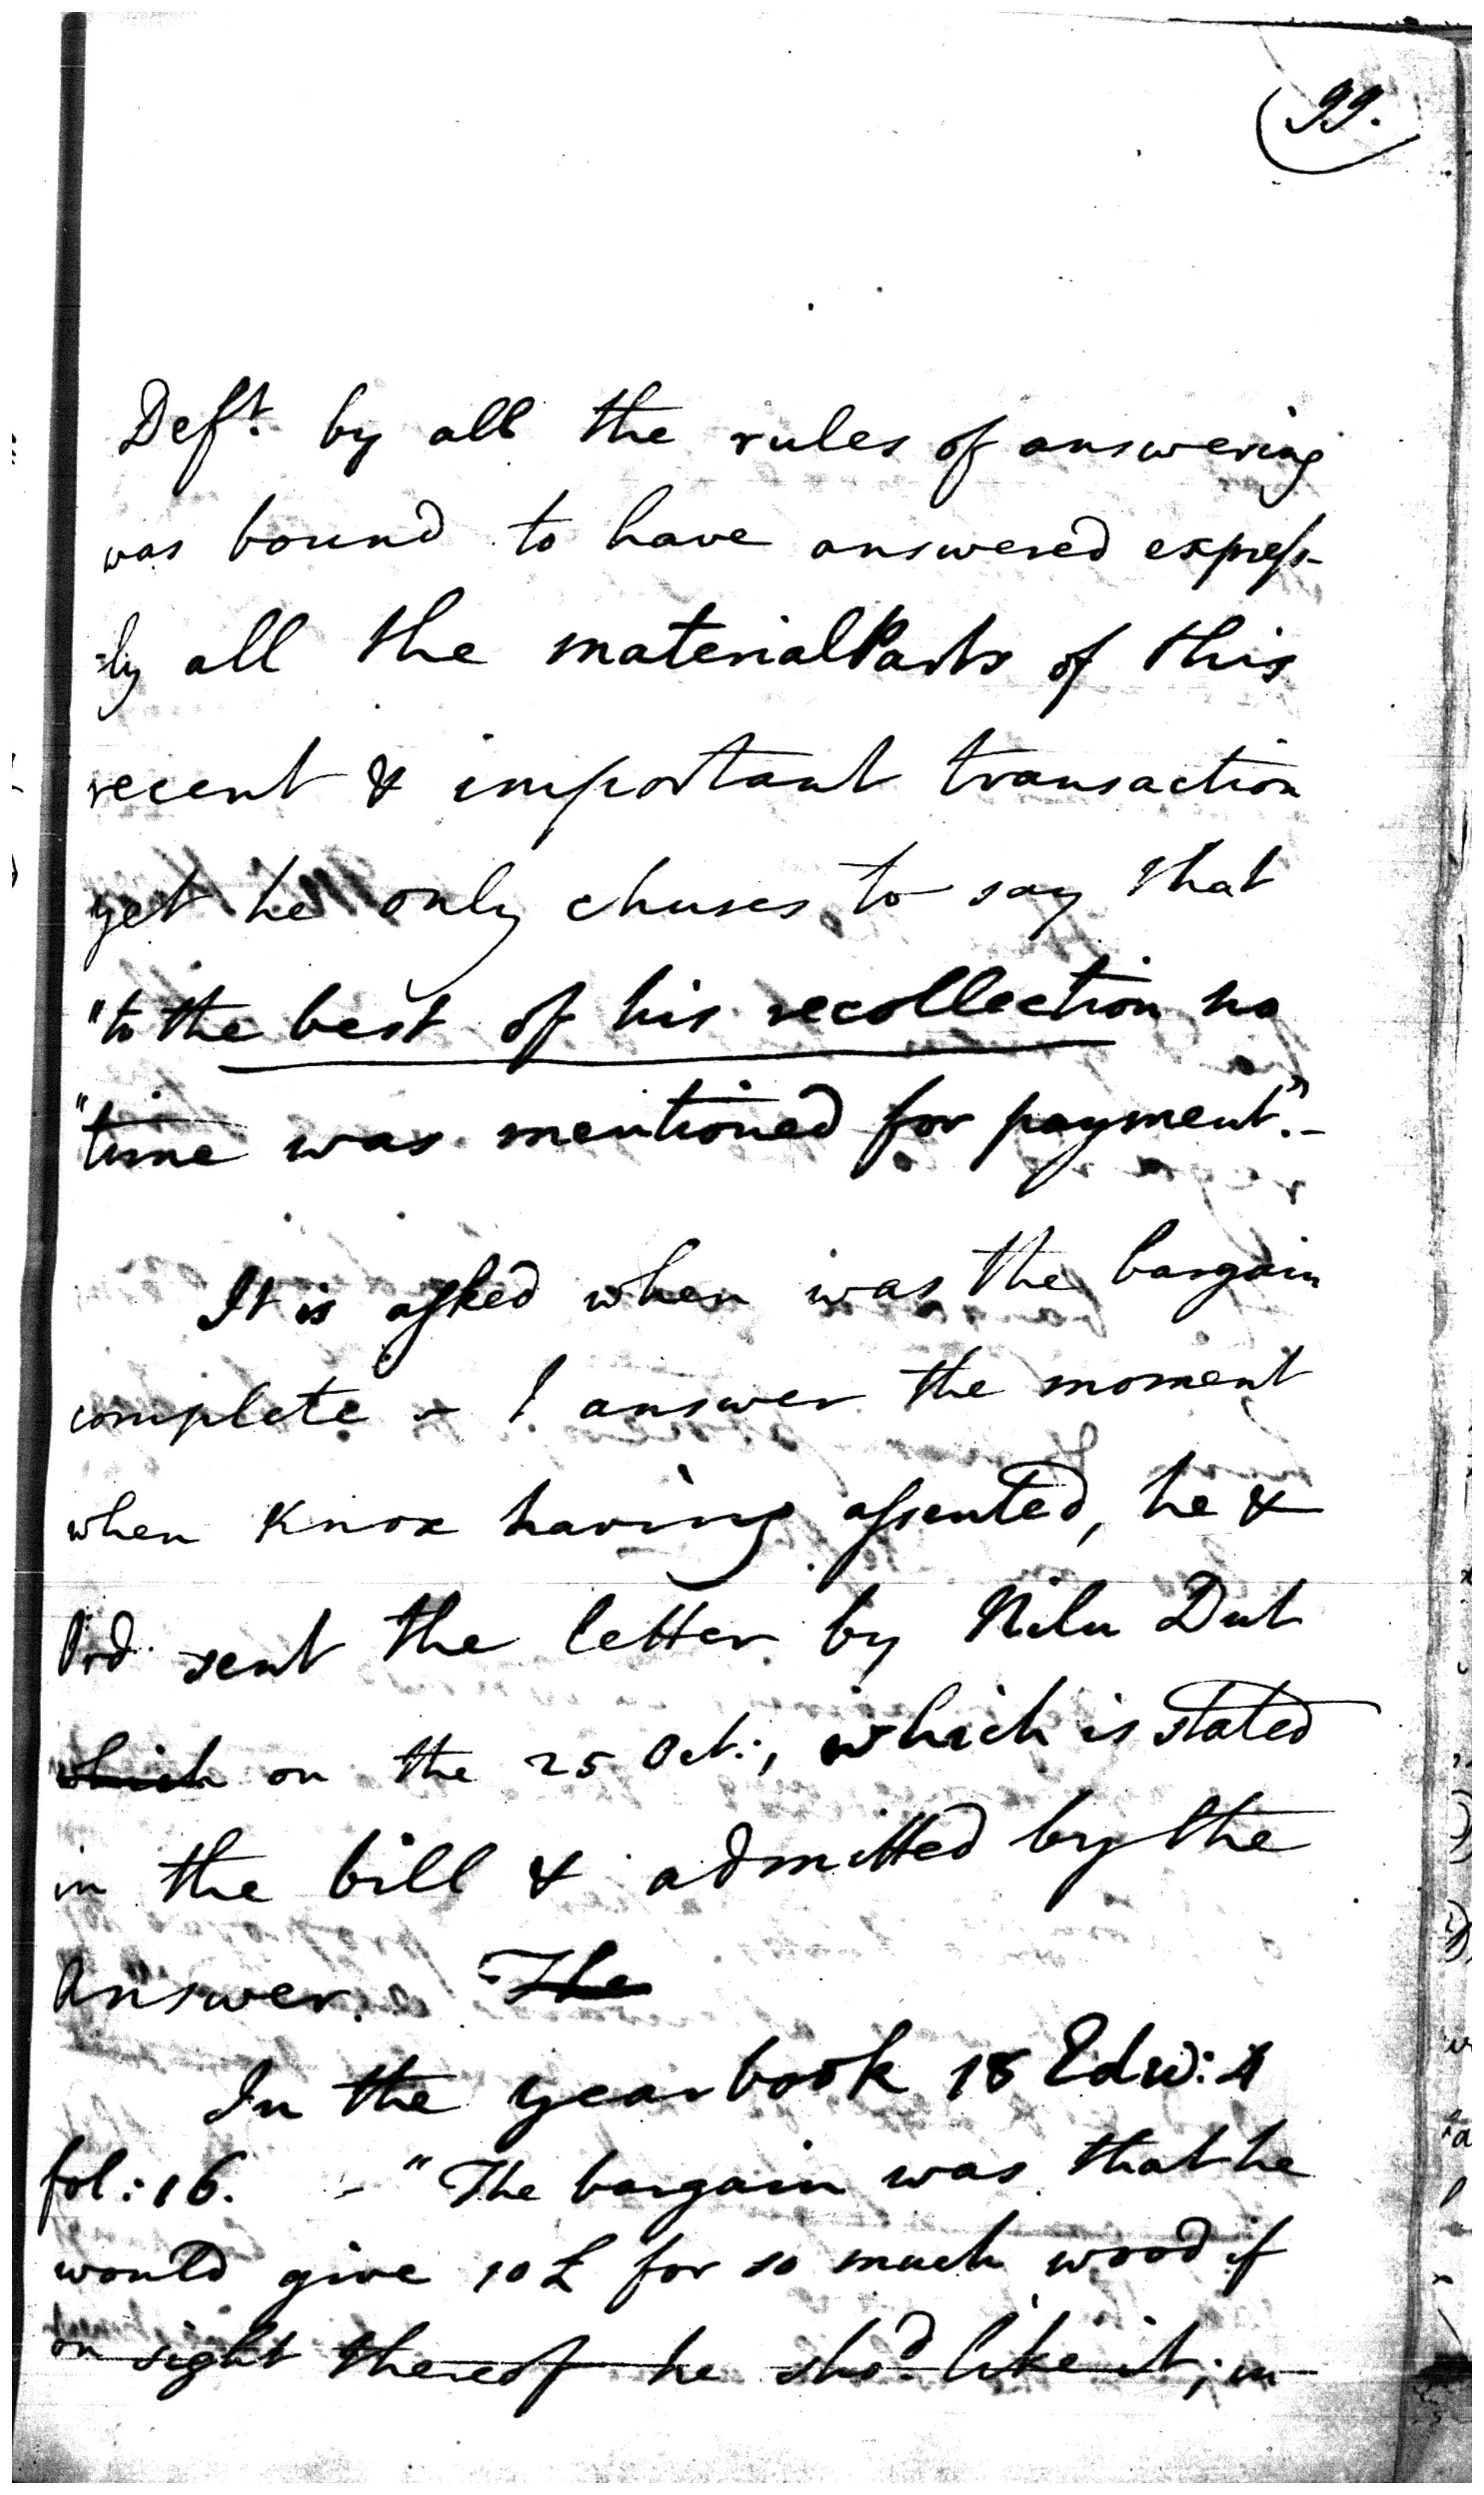 99.
Deft. by all the rules of answering
was bound to have answered express-
-ly all the material Parts of this
recent & important transaction
yet he only chuses to say that
"to the best of his recollection no
"time was mentioned for payment." -
It is asked when was the bargain
complete - I answer the moment
when Knox having assented, he &
Ord sent the letter by Nilu Dut
which on the 25 Oct:, which is stated
in the bill & admitted by the
Answer. The
In the yearbook 18 Edw: 4
fol: 16. - "The bargain was that he
would give 10£ for so much wood if
on sight thereof he shod. like it; in